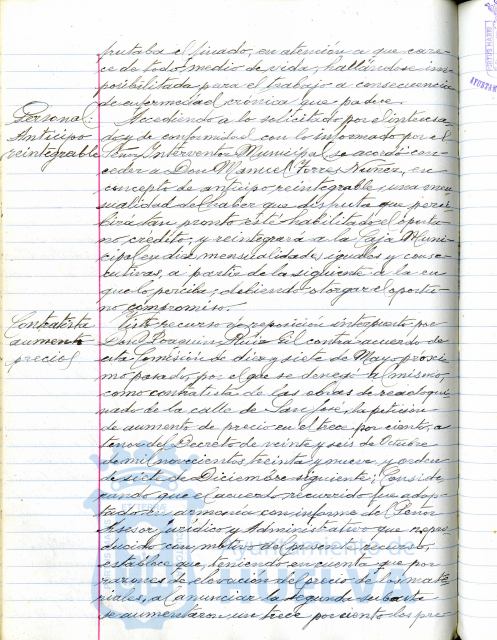 putaba el finado, en atención a que care-
ce de todo medio de vida, hallándose im-
posibilitada para el trabajo a consecuencia
de enfermedad crónica que padece.
Personal:
Anticipo
reintegrable
Accediendo a lo solicitado por el interesa-
do y de conformidad con lo informado por el
Señor Interventor Municipal, se acordó con-
ceder a Don Manuel Torres Núñez, en
concepto de anticipo reintegrable, una men-
sualidad del haber que disfruta que perci-
birá tan pronto esté habilitado el oportu-
no crédito, y reintegrará a la Caja Muni-
cipal en diez mensualidades iguales y conse-
cutivas, a partir de la siguiente a la en
que lo perciba, debiendo otorgar el oportu-
no compromiso.
Contratista
aumento
precios
Visto recurso de reposición interpuesto por
Don Joaquín Ruiz Gil contra acuerdo de
esta Comisión de diez y siete de Mayo próxi-
mo pasado, por el que se denegó al mismo,
como contratista de las obras de readoqui-
nado de la calle de San José, la petición
de aumento de precio en el trece por ciento, a
tenor del Decreto de veinte y seis de Octubre
de mil novecientos treinta y nueve, y orden
de siete de Diciembre siguiente; Conside-
rando que el acuerdo recurrido fue adop-
tado en armonía con informe del Señor
Asesor Jurídico y Administrativo que repro-
ducido con motivo del presente recurso,
establece que, teniendo en cuenta que por
razones de elevación del precio de los mate-
riales, al anunciar la segunda subasta
se aumentaron un trece por ciento los pre-
Ayuntamiento de
HUELVA